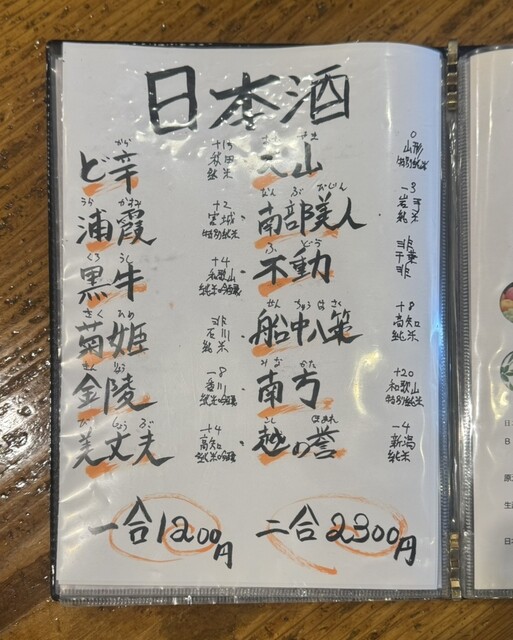 日本酒
から
ど辛
+19
秋田
純米
山
0
山形
特別純米
うら かすみ
浦霞
+2
宮城
特別純米
なん ぶ びじん
南部美人
-3
岩手
純米
くろ うし
黒牛
+4
和歌山
純米吟醸
ふ どう
不動
非
千葉
非
きく ひめ
菊姫
非
石川
純米
せん ちゅう はっ さく
船中八策
+8
高知
純米
きん りょう
金陵
-8
香川
純米吟醸
みな かた
南方
+20
和歌山
特別純米
び じょう ぶ
美丈夫
+4
高知
純米吟醸
こし ほまれ
越の誉
-4
新潟
純米
一合1200円
二合2300円